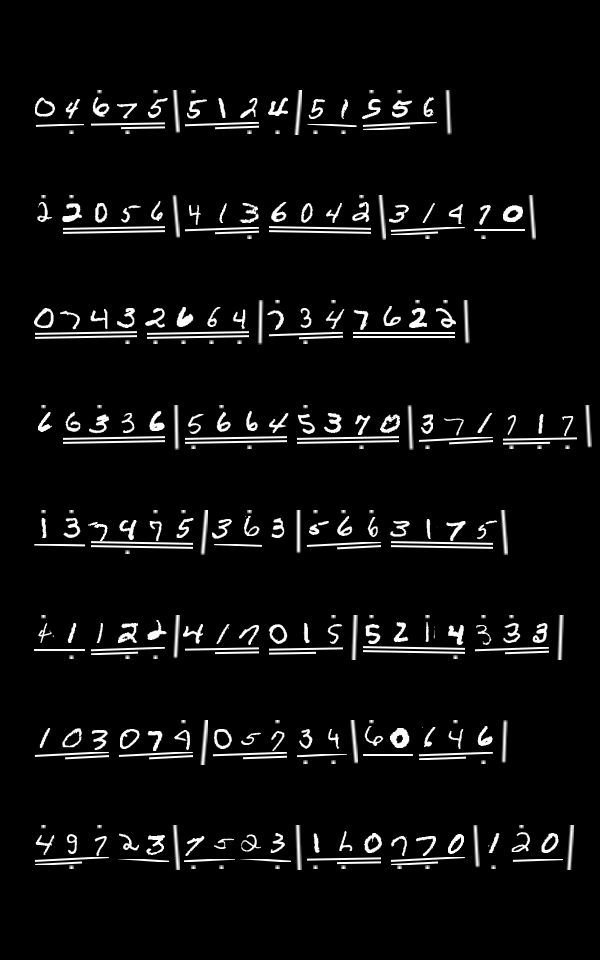 04675|5124|51556
22056|4136042|31470
07432664|7347622
66336|56645370|371717
137475|363|5663175
41122|417015|5214333
103074|05734|60646
49723|7523|160770|120